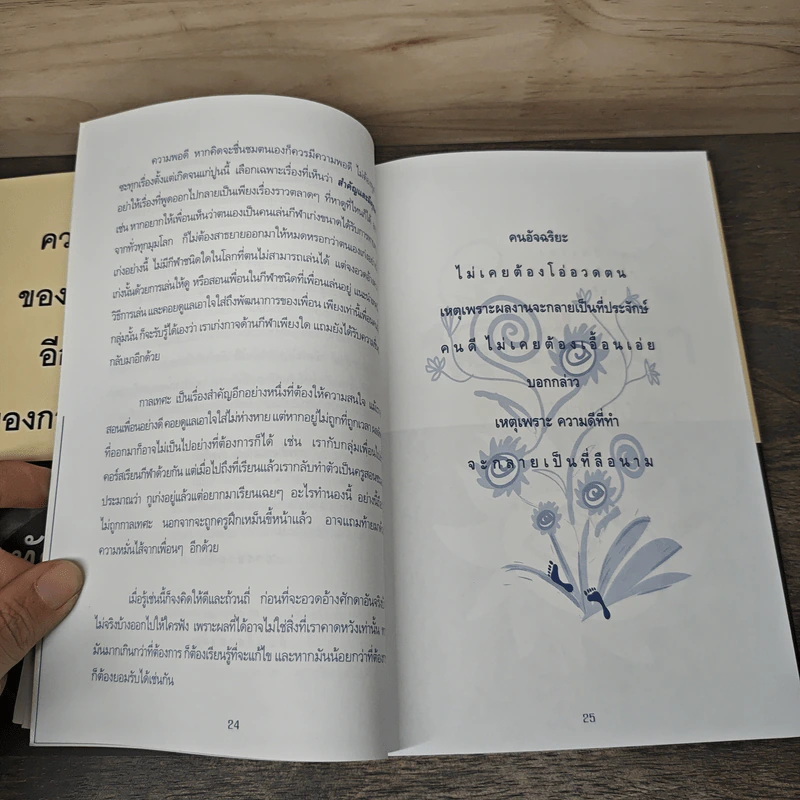 คว
ของ
อีก
ของกา
ความพอดี หากคิดจะชื่นชมตนเองก็ควรมีความพอดี
ซะทุกเรื่องตั้งแต่เกิดจนแก่ปูนนี้ เลือกเฉพาะเรื่องที่เห็นว่า สำคัญและ
อย่าให้เรื่องที่พูดออกไปกลายเป็นเพียงเรื่องราวตลาดๆ ที่หาดูที่ไหนก็ได้
เช่น หากอยากให้เพื่อนเห็นว่าตนเองเป็นคนเล่นกีฬาเก่งขนาดได้รับการ
จากทั่วทุกมุมโลก ก็ไม่ต้องสาธยายออกมาให้หมดหรอกว่าตนเอง
เก่งอย่างนี้ ไม่มีกีฬาชนิดใดในโลกที่ตนไม่สามารถเล่นได้ แต่จงอวด
เก่งนั้นด้วยการเล่นให้ดู หรือสอนเพื่อนในกีฬาชนิดที่เพื่อนเล่นอยู่
วิธีการเล่น และคอยดูแลเอาใจใส่ถึงพัฒนาการของเพื่อน เพียงเท่านี้
กลุ่มนั้น ก็จะรับรู้ได้เองว่า เราเก่งกาจด้านกีฬาเพียงใด แถมยังได้รับ
กลับมาอีกด้วย
กาลเทศะ เป็นเรื่องสำคัญอีกอย่างหนึ่งที่ต้องให้ความสนใจ
สอนเพื่อนอย่างดี คอยดูแลเอาใจใส่ไม่ห่างหาย แต่หากอยู่ไม่ถูกที่ถูกเวลา
ที่ออกมาก็อาจไม่เป็นไปอย่างที่ต้องการก็ได้ เช่น เรากับกลุ่มเพื่อน
คอร์สเรียนกีฬาด้วยกัน แต่เมื่อไปถึงที่เรียนแล้วเรากลับทำตัวเป็นครูสอน
ประมาณว่า กูเก่งอยู่แล้วแต่อยากมาเรียนเฉยๆ อะไรทำนองนี้ อย่างนี้
ไม่ถูกกาลเทศะ นอกจากจะถูกครูฝึกเหม็นขี้หน้าแล้ว อาจแถมท้าย
ความหมั่นไส้จากเพื่อนๆ อีกด้วย
เมื่อรู้เช่นนี้ก็จงคิดให้ดีและถ้วนถี่ ก่อนที่จะอวดอ้างศักดาอันจริง
ไม่จริงบ้างออกไปให้ใครฟัง เพราะผลที่ได้อาจไม่ใช่สิ่งที่เราคาดหวังเท่านั้น
มันมากเกินกว่าที่ต้องการ ก็ต้องเรียนรู้ที่จะแก้ไข และหากมันน้อยกว่าที่
ก็ต้องยอมรับได้เช่นกัน
24
คนอัจฉริยะ
ไม่เคยต้องโอ้อวดตน
เหตุเพราะผลงานจะกลายเป็นที่ประจักษ์
คนดี ไม่เคยต้องเอื้อนเอ่ย
บอกกล่าว
เหตุเพราะ ความดีที่ทำ
จะกลายเป็นที่ลือนาม
25